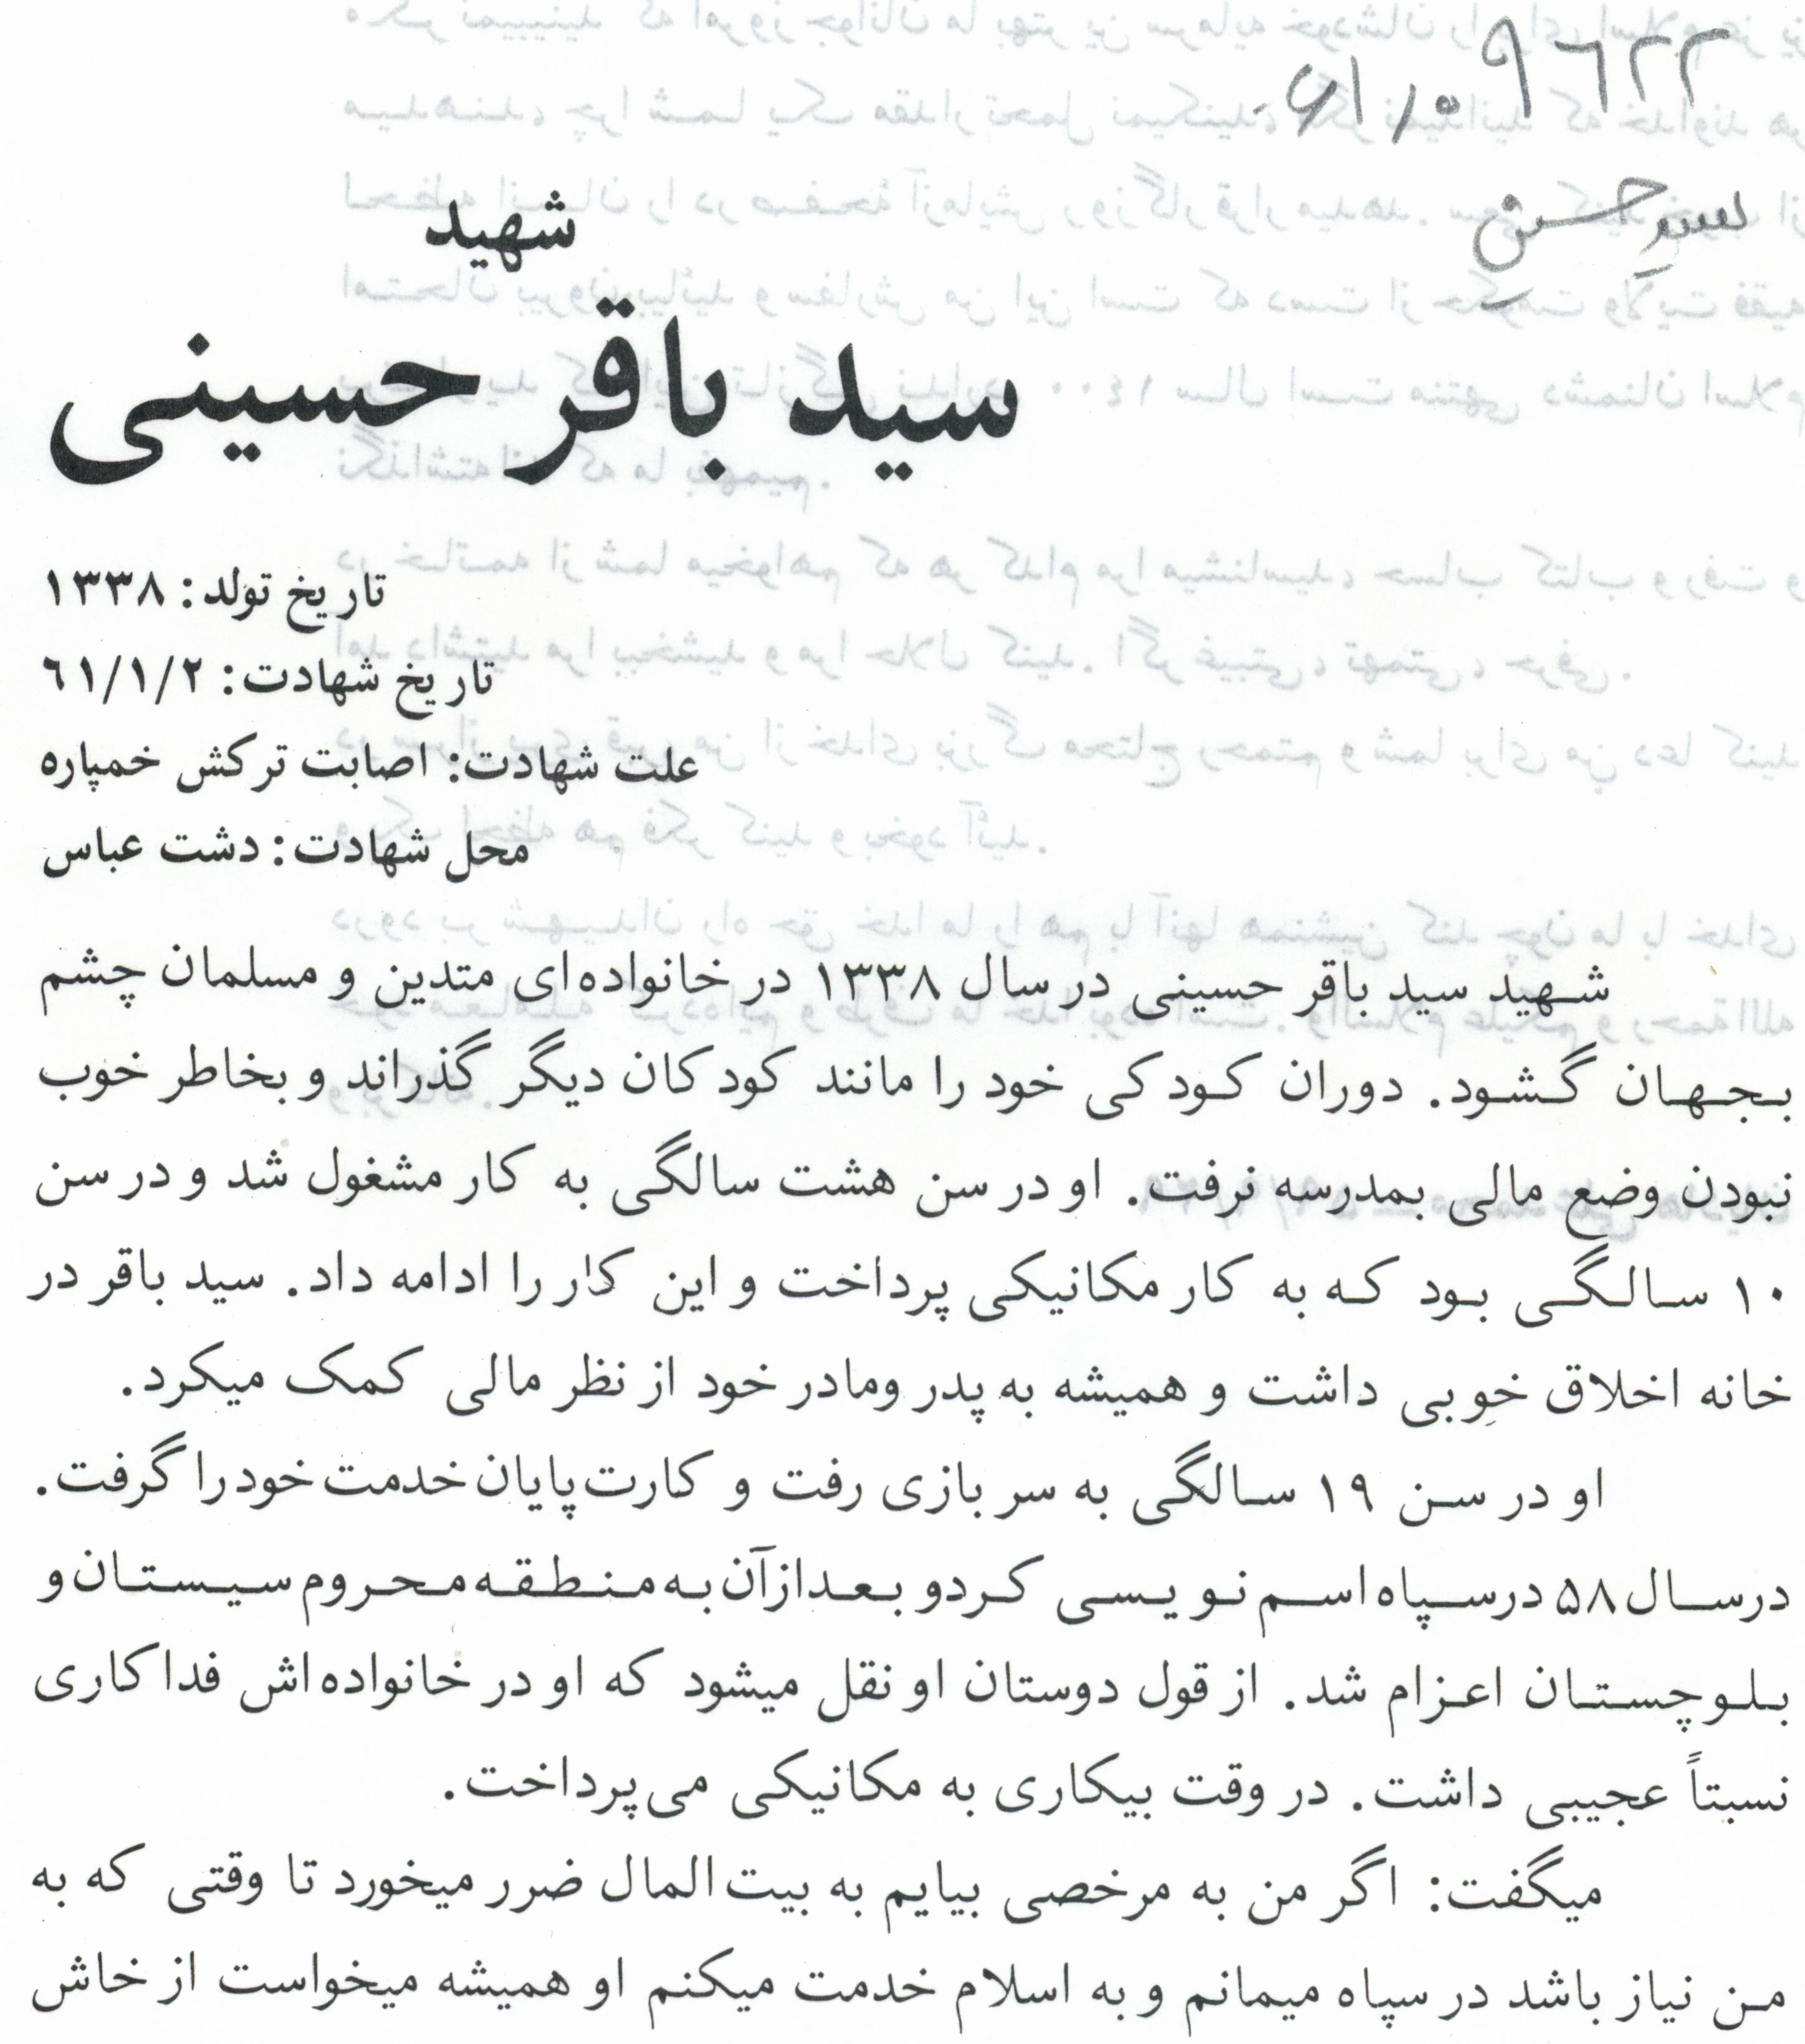 ۹۶۲۲
شهید
سید باقر حسینی
تاریخ تولد: ۱۳۳۸
تاریخ شهادت: ٦١/١/٢
علت شهادت: اصابت ترکش خمپاره
محل شهادت: دشت عباس
شهید سید باقر حسینی در سال ۱۳۳۸ در خانواده‌ای متدین و مسلمان چشم
بجهان گشود. دوران کودکی خود را مانند کودکان دیگر گذراند و بخاطر خوب
نبودن وضع مالی بمدرسه نرفت. او در سن هشت سالگی به کار مشغول شد و در سن
۱۰ سالگی بود که به کار مکانیکی پرداخت و این کار را ادامه داد. سید باقر در
خانه اخلاق خوبی داشت و همیشه به پدر ومادر خود از نظر مالی کمک میکرد.
او در سن ۱۹ سالگی به سربازی رفت و کارت پایان خدمت خود را گرفت.
درسال ۵۸ درسپاه اسم نویسی کردو بعدازآن به منطقه محروم سیستان و
بلوچستان اعزام شد. از قول دوستان او نقل میشود که او در خانواده‌اش فداکاری
نسبتاً عجیبی داشت. در وقت بیکاری به مکانیکی می‌پرداخت.
میگفت: اگر من به مرخصی بیایم به بیت المال ضرر میخورد تا وقتی که به
من نیاز باشد در سپاه میمانم و به اسلام خدمت میکنم او همیشه میخواست از خاش